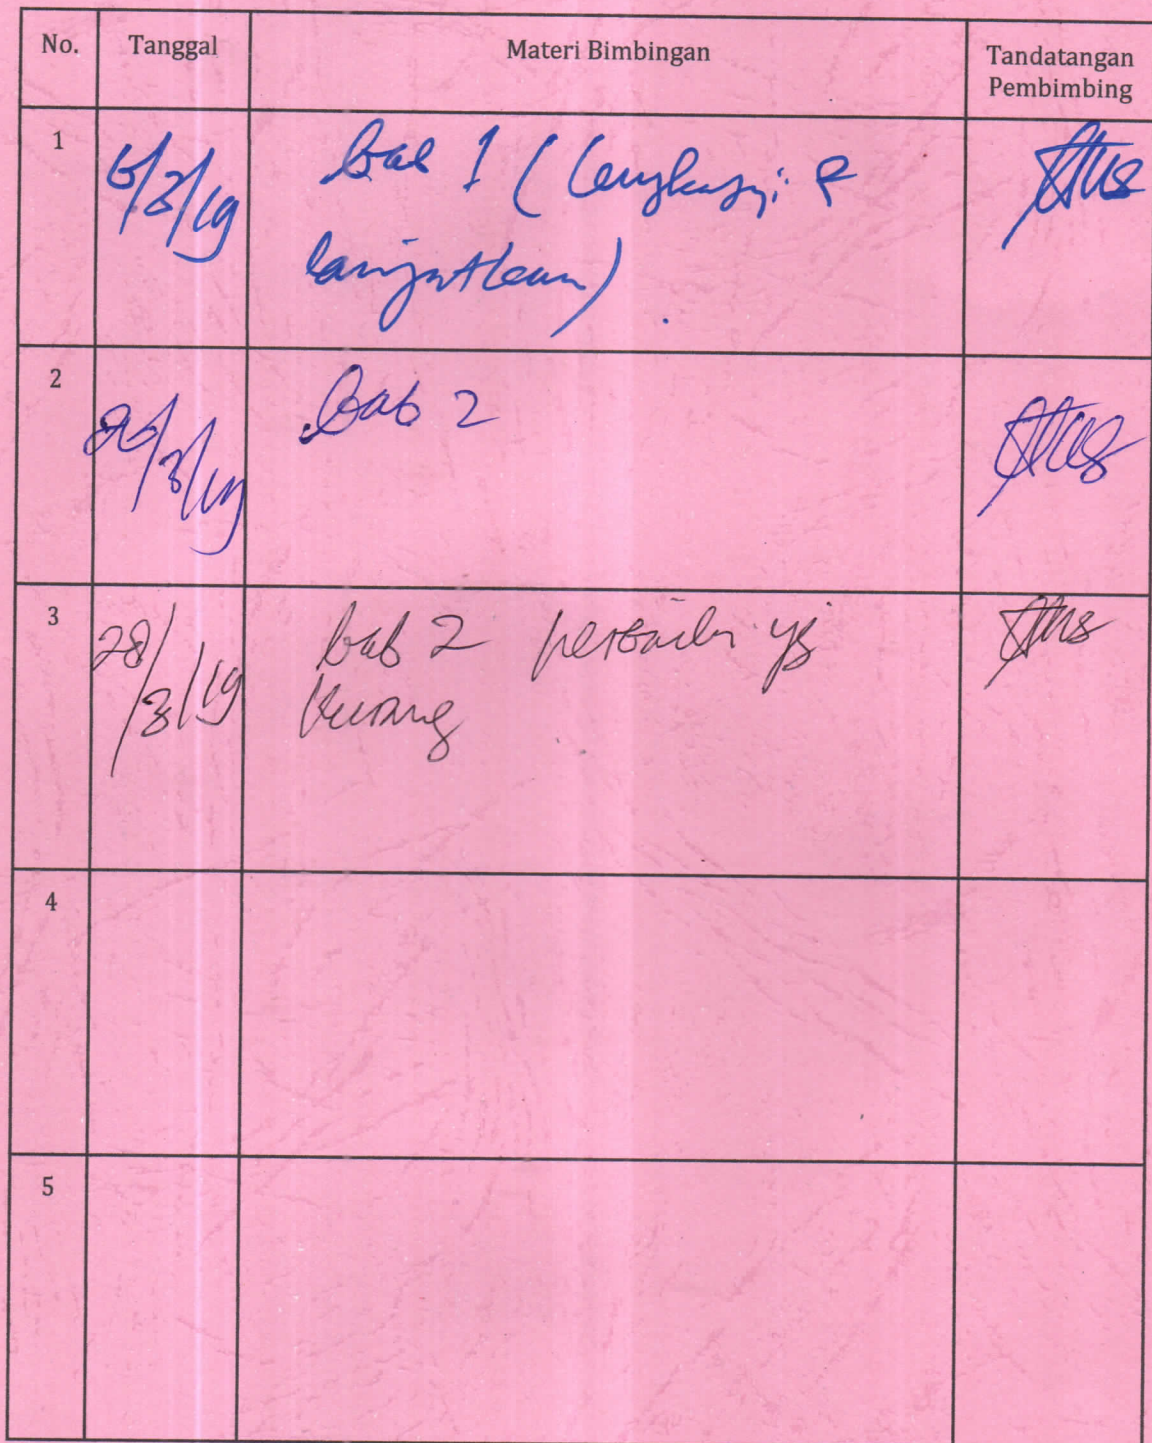 No. Tanggal Materi Bimbingan Tandatangan
Pembimbing
1 bab 1 (lengkapi &
lanjutkan)
2 bab 2
3 28/3/19 bab 2 perbaiki yg
kurang
4
5